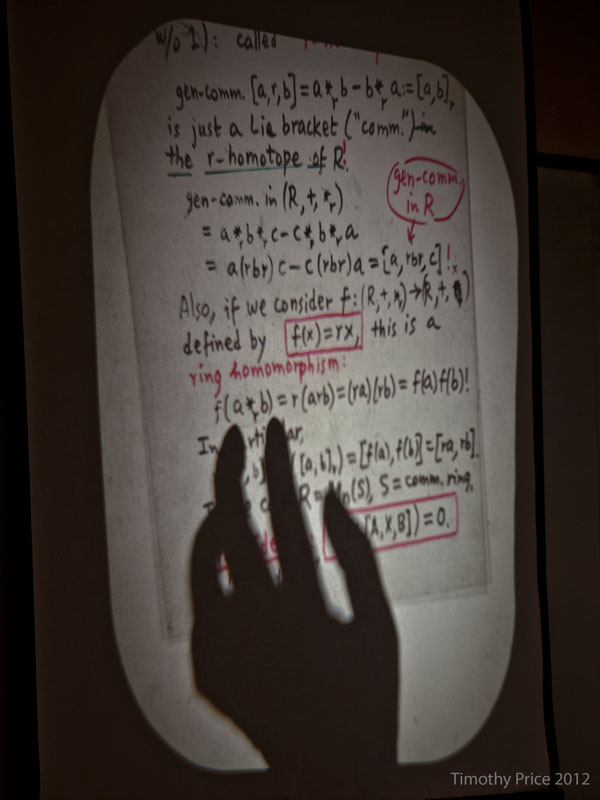 w/o 1): called
gen-comm. [a,r,b] = a *ᵣ b - b *ᵣ a := [a,b]ᵣ
is just a Lie bracket ("comm.") in
the r-homotope of R!
gen-comm. in R
gen-comm. in (R, +, *ᵣ)
= a *ᵣ b *ᵣ c - c *ᵣ b *ᵣ a
= a(rbr)c - c(rbr)a = [a, rbr, c]!
Also, if we consider f: (R,+,*ᵣ) → (R,+,
defined by f(x) = rx, this is a
ring homomorphism:
f(a *ᵣ b) = r(arb) = (ra)(rb) = f(a)f(b)!
In
[a,b]ᵣ) = [f(a), f(b)] = [ra, rb].
R = Mₙ(S), S = comm. ring,
[A,X,B]) = 0.
Timothy Price 2012